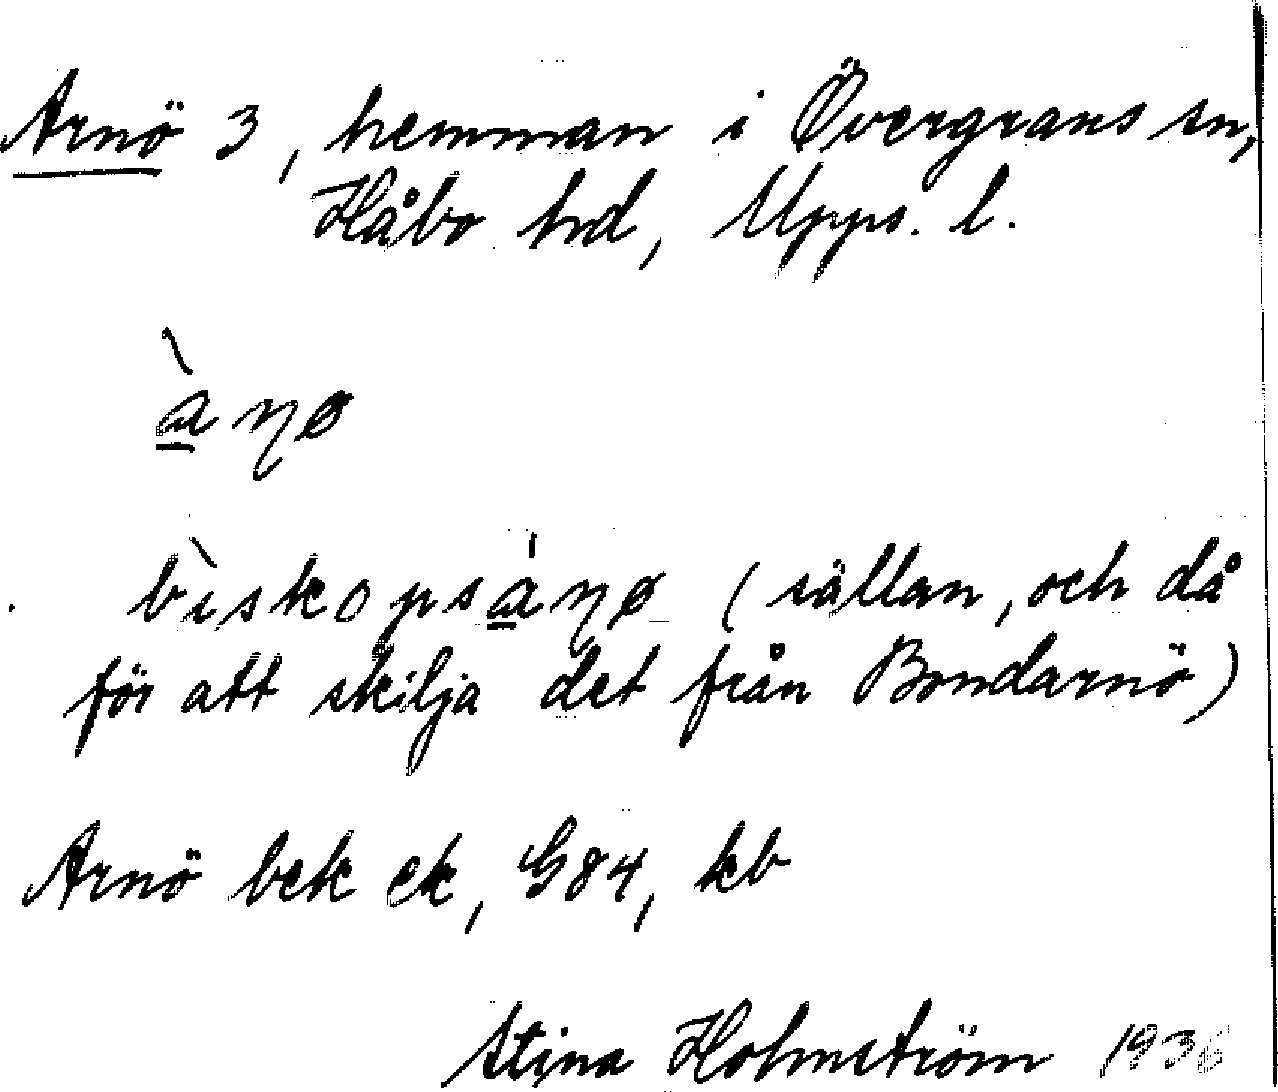 Arnö 3, hemman i Övergrans sn,
Håbo hd, Upps. l.
àṇø
bìskopsáṇø (sällan, och då
för att skilja det från Bondarnö)
Arnö bek ek, G84, kb
Stina Holmström 1936